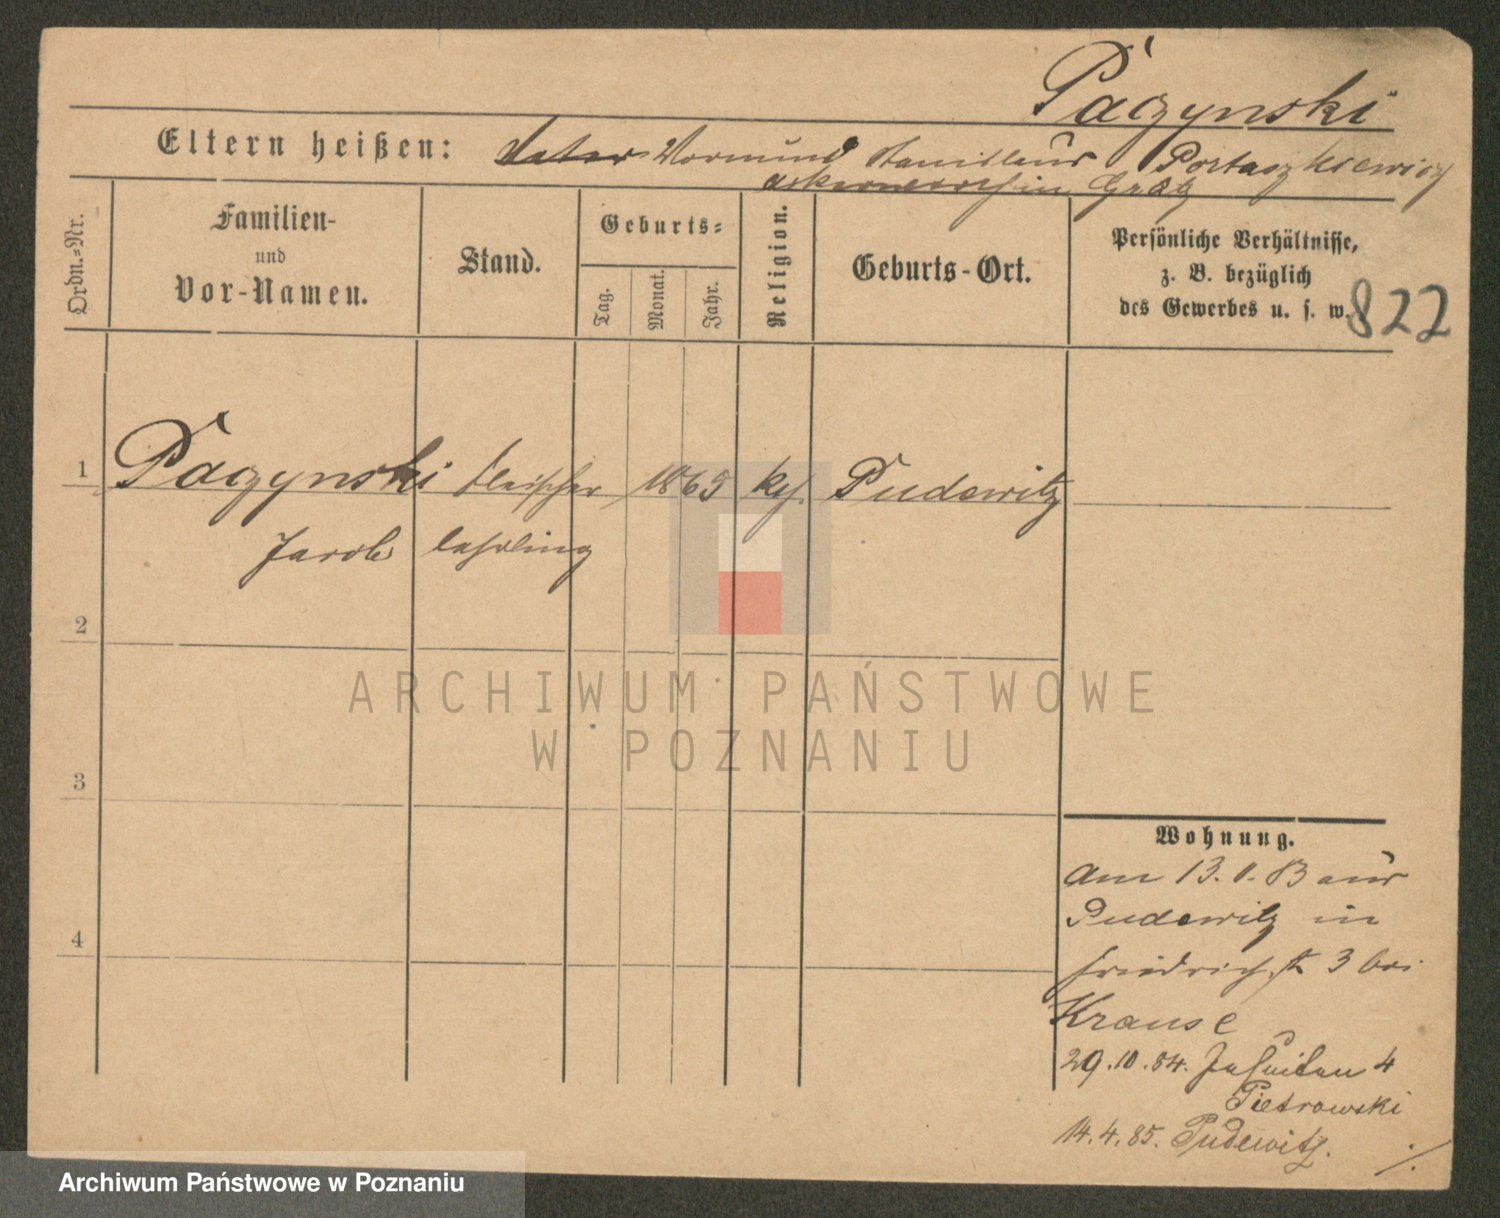 Paczynski
Eltern heißen: Vater Vormund Stanislaus Portaszkiewicz
in Grätz
Ordn.-Nr.
Familien-
und
Vor-Namen.
Stand.
Geburts-
Tag.
Monat.
Jahr.
Religion.
Geburts-Ort.
Persönliche Verhältnisse,
z. B. bezüglich
des Gewerbes u. s. w.
822
1 Paczynski fleischer 1865 kth Pudewitz
Jacob lehrling
2
3
4
Wohnung.
Am 13. 83 aus
Pudewitz in
Friedrichstr 3 bei
Krause
29.10.84. Jesuiten 4
Pietrowski
14.4.85. Pudewitz.
ARCHIWUM PAŃSTWOWE
W POZNANIU
Archiwum Państwowe w Poznaniu